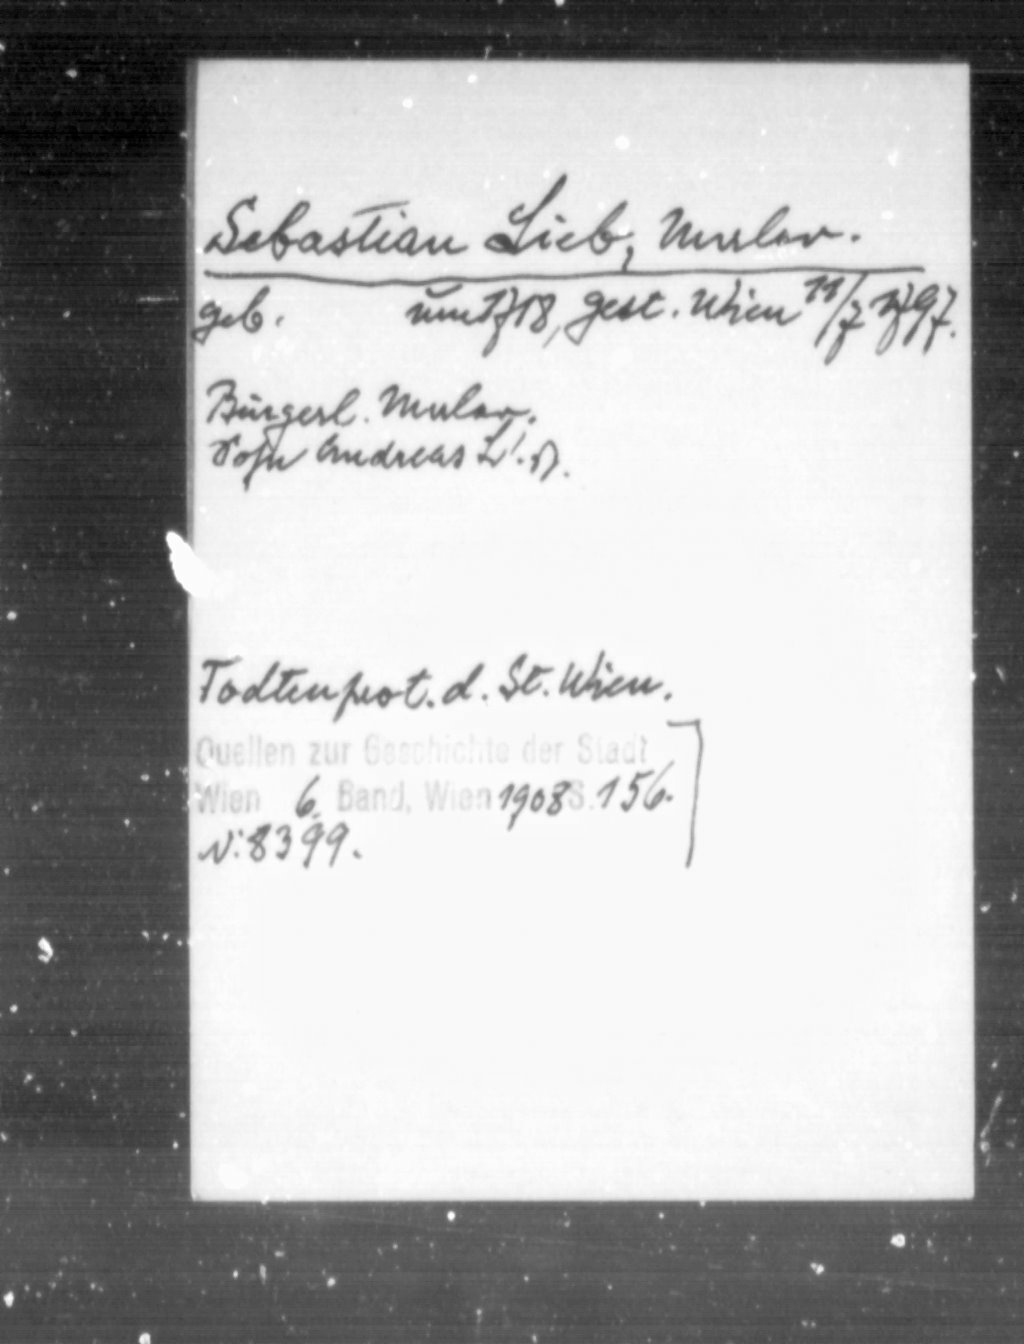 Sebastian Lieb, Maler.
geb. um 1718, gest. Wien 11/7 1797.
Bürgerl. Maler.
Sohn Andreas L's.
Todtenprot. d. St. Wien.
Quellen zur Geschichte der Stadt
Wien 6. Band, Wien 1908 S. 156.
N: 8399.